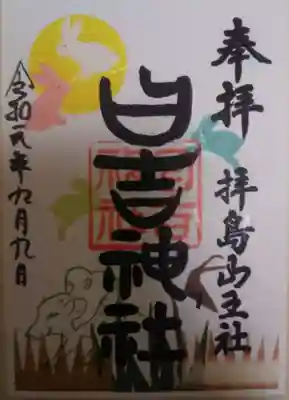 奉拝
拝島山王社
日吉神社
令和元年九月九日